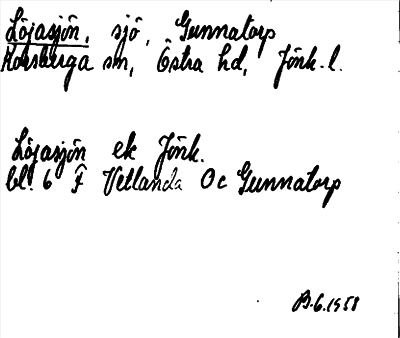 Löjasjön, sjö, Gunnatorp
Korsberga sn, Östra hd, Jönk. l.
Löjasjön ek Jönk.
bl. 6 F Vetlanda Oc Gunnatorp
B.6.1958